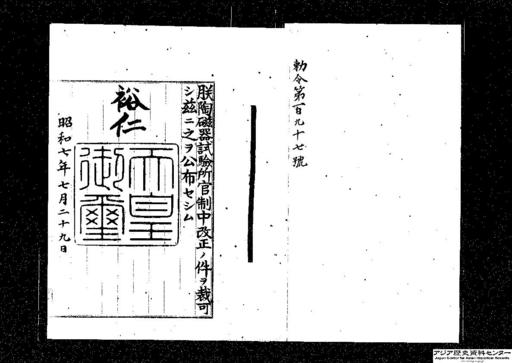 勅令第百九十七號
朕陶磁器試驗所官制中改正ノ件ヲ裁可
シ茲ニ之ヲ公布セシム
裕仁
天皇
御璽
昭和七年七月二十九日
アジア歴史資料センター
Japan Center for Asian Historical Records